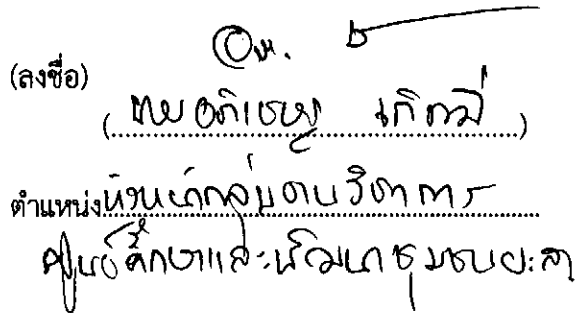 (ลงชื่อ)
(นายอภิเชษฐ์ )
ตำแหน่งหัวหน้ากลุ่มงานวิชาการ
ศูนย์ศึกษาและพัฒนาชุมชนยะลา